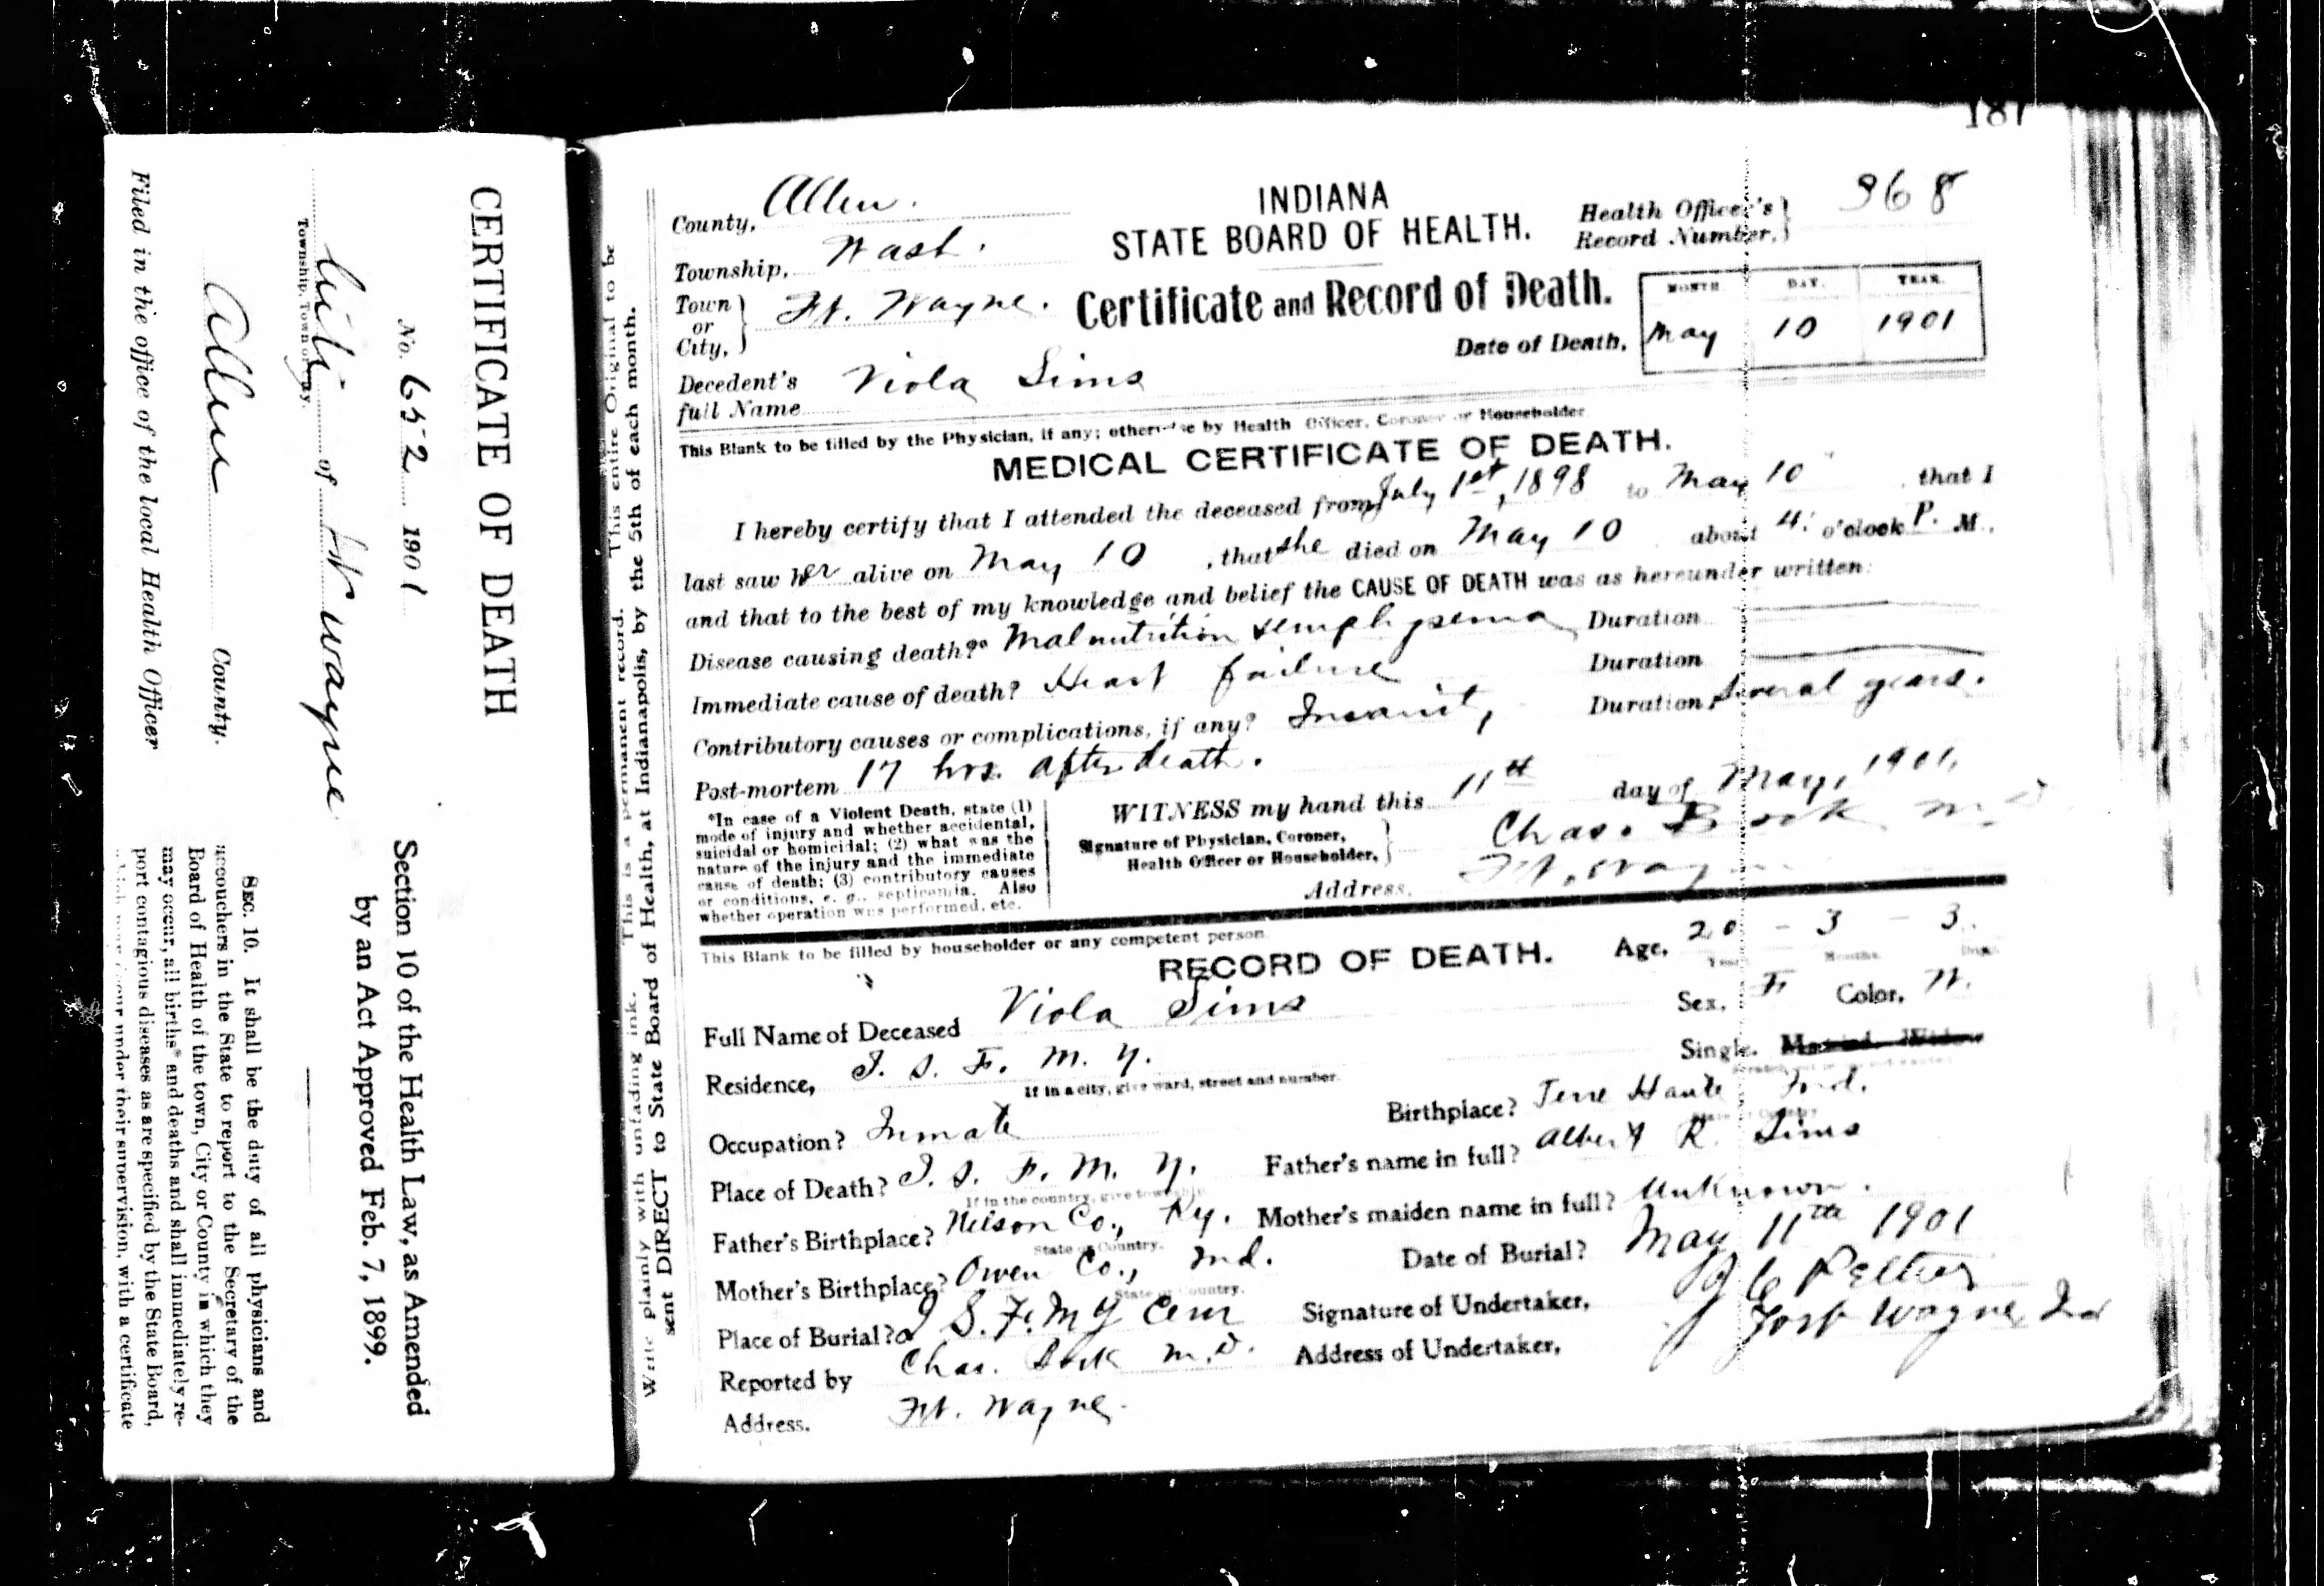 187
CERTIFICATE OF DEATH
No. 652 1901
of Ft Wayne
Township, Town or City.
Allen County.
Filed in the office of the local Health Officer
Section 10 of the Health Law, as Amended
by an Act Approved Feb. 7, 1899.
SEC. 10. It shall be the duty of all physicians and
accouchers in the State to report to the Secretary of the
Board of Health of the town, City or County in which they
may occur, all births* and deaths and shall immediately re-
port contagious diseases as are specified by the State Board,
under their supervision, with a certificate
Write plainly with unfading ink. This is a permanent record. This entire Original to be
sent DIRECT to State Board of Health, at Indianapolis, by the 5th of each month.
County, Allen.
INDIANA
STATE BOARD OF HEALTH.
Health Officer's Record Number, 368
Township, Wash.
Town or City, Ft. Wayne.
Certificate and Record of Death.
MONTH DAY. YEAR.
Date of Death, May 10 1901
Decedent's full Name Viola Sims
This Blank to be filled by the Physician, if any; otherwise by Health Officer, Coroner or Householder
MEDICAL CERTIFICATE OF DEATH.
I hereby certify that I attended the deceased from July 1st, 1898 to May 10, that I
last saw her alive on May 10, that she died on May 10 about 4: o'clock P. M.,
and that to the best of my knowledge and belief the CAUSE OF DEATH was as hereunder written:
Disease causing death?* Malnutrition & emphysema Duration
Immediate cause of death? Heart failure Duration
Contributory causes or complications, if any? Insanity Duration, Several years.
Post-mortem 17 hrs. after death.
*In case of a Violent Death, state (1)
mode of injury and whether accidental,
suicidal or homicidal; (2) what was the
nature of the injury and the immediate
cause of death; (3) contributory causes
or conditions, e. g., septicemia. Also
whether operation was performed, etc.
WITNESS my hand this 11th day of May, 1901,
Signature of Physician, Coroner,
Health Officer or Householder, Chas. Bock M.D
Address, Ft. Wayne
This Blank to be filled by householder or any competent person.
RECORD OF DEATH.
Age, 20 - 3 - 3.
Years Months Days
Full Name of Deceased Viola Sims
Sex, F Color, W.
Residence, I. S. F. M. Y.
If in a city, give ward, street and number.
Single. Married. Widow
Occupation? Inmate
Birthplace? Terre Haute, Ind.
State or Country
Place of Death? I. S. F. M. Y.
If in the country, give township.
Father's name in full? Albert R. Sims
Father's Birthplace? Nelson Co., Ky.
State or Country.
Mother's maiden name in full? Unknown.
Mother's Birthplace? Owen Co., Ind.
State or Country.
Date of Burial? May 11th 1901
Place of Burial? I S. F. M Y Cem
Signature of Undertaker, Peltier
Reported by Chas. Bock M.D.
Address of Undertaker, Fort Wayne Ind
Address. Ft. Wayne.